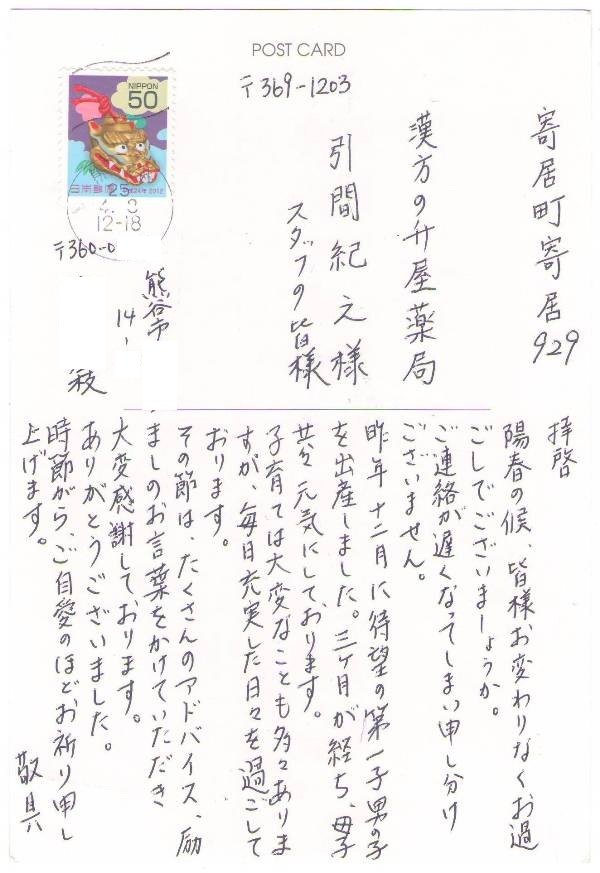 POST CARD
〒369-1203
寄居町寄居
929
漢方の升屋薬局
引間紀之様
スタッフの皆様
NIPPON
50
日本郵便
平成24年 2012
25
4. 3
12-18
〒360-0
熊谷市
14-
拝啓
陽春の候、皆様お変わりなくお過
ごしでございましょうか。
ご連絡が遅くなってしまい申し分け
ございません。
昨年十二月に待望の第一子男の子
を出産しました。三ヶ月が経ち、母子
共々元気にしております。
子育ては大変なことも多々ありま
すが、毎日充実した日々を過ごして
おります。
その節は、たくさんのアドバイス、励
ましのお言葉をかけていただき
大変感謝しております。
ありがとうございました。
時節がら、ご自愛のほどお祈り申し
上げます。
敬具